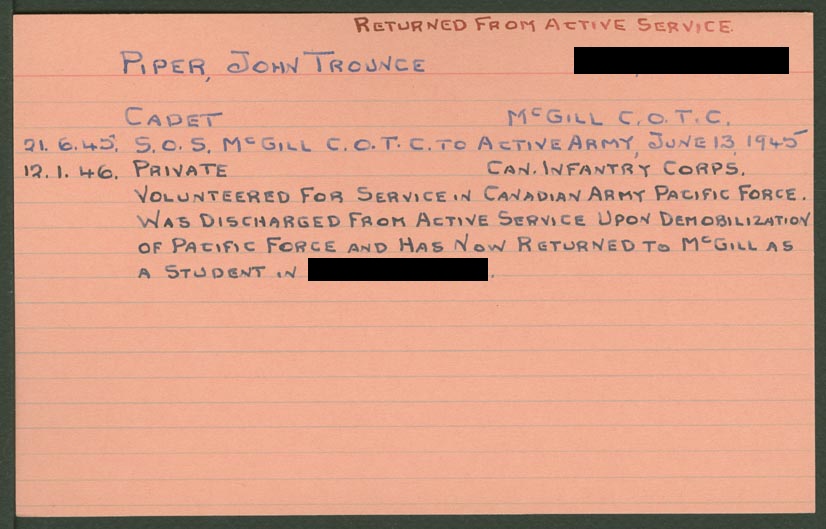 RETURNED FROM ACTIVE SERVICE.
PIPER, JOHN TROUNCE
CADET McGILL C.O.T.C.
21.6.45. S.O.S. McGILL C.O.T.C. TO ACTIVE ARMY, JUNE 13, 1945
12.1.46. PRIVATE CAN. INFANTRY CORPS.
VOLUNTEERED FOR SERVICE IN CANADIAN ARMY PACIFIC FORCE.
WAS DISCHARGED FROM ACTIVE SERVICE UPON DEMOBILIZATION
OF PACIFIC FORCE AND HAS NOW RETURNED TO McGILL AS
A STUDENT IN .